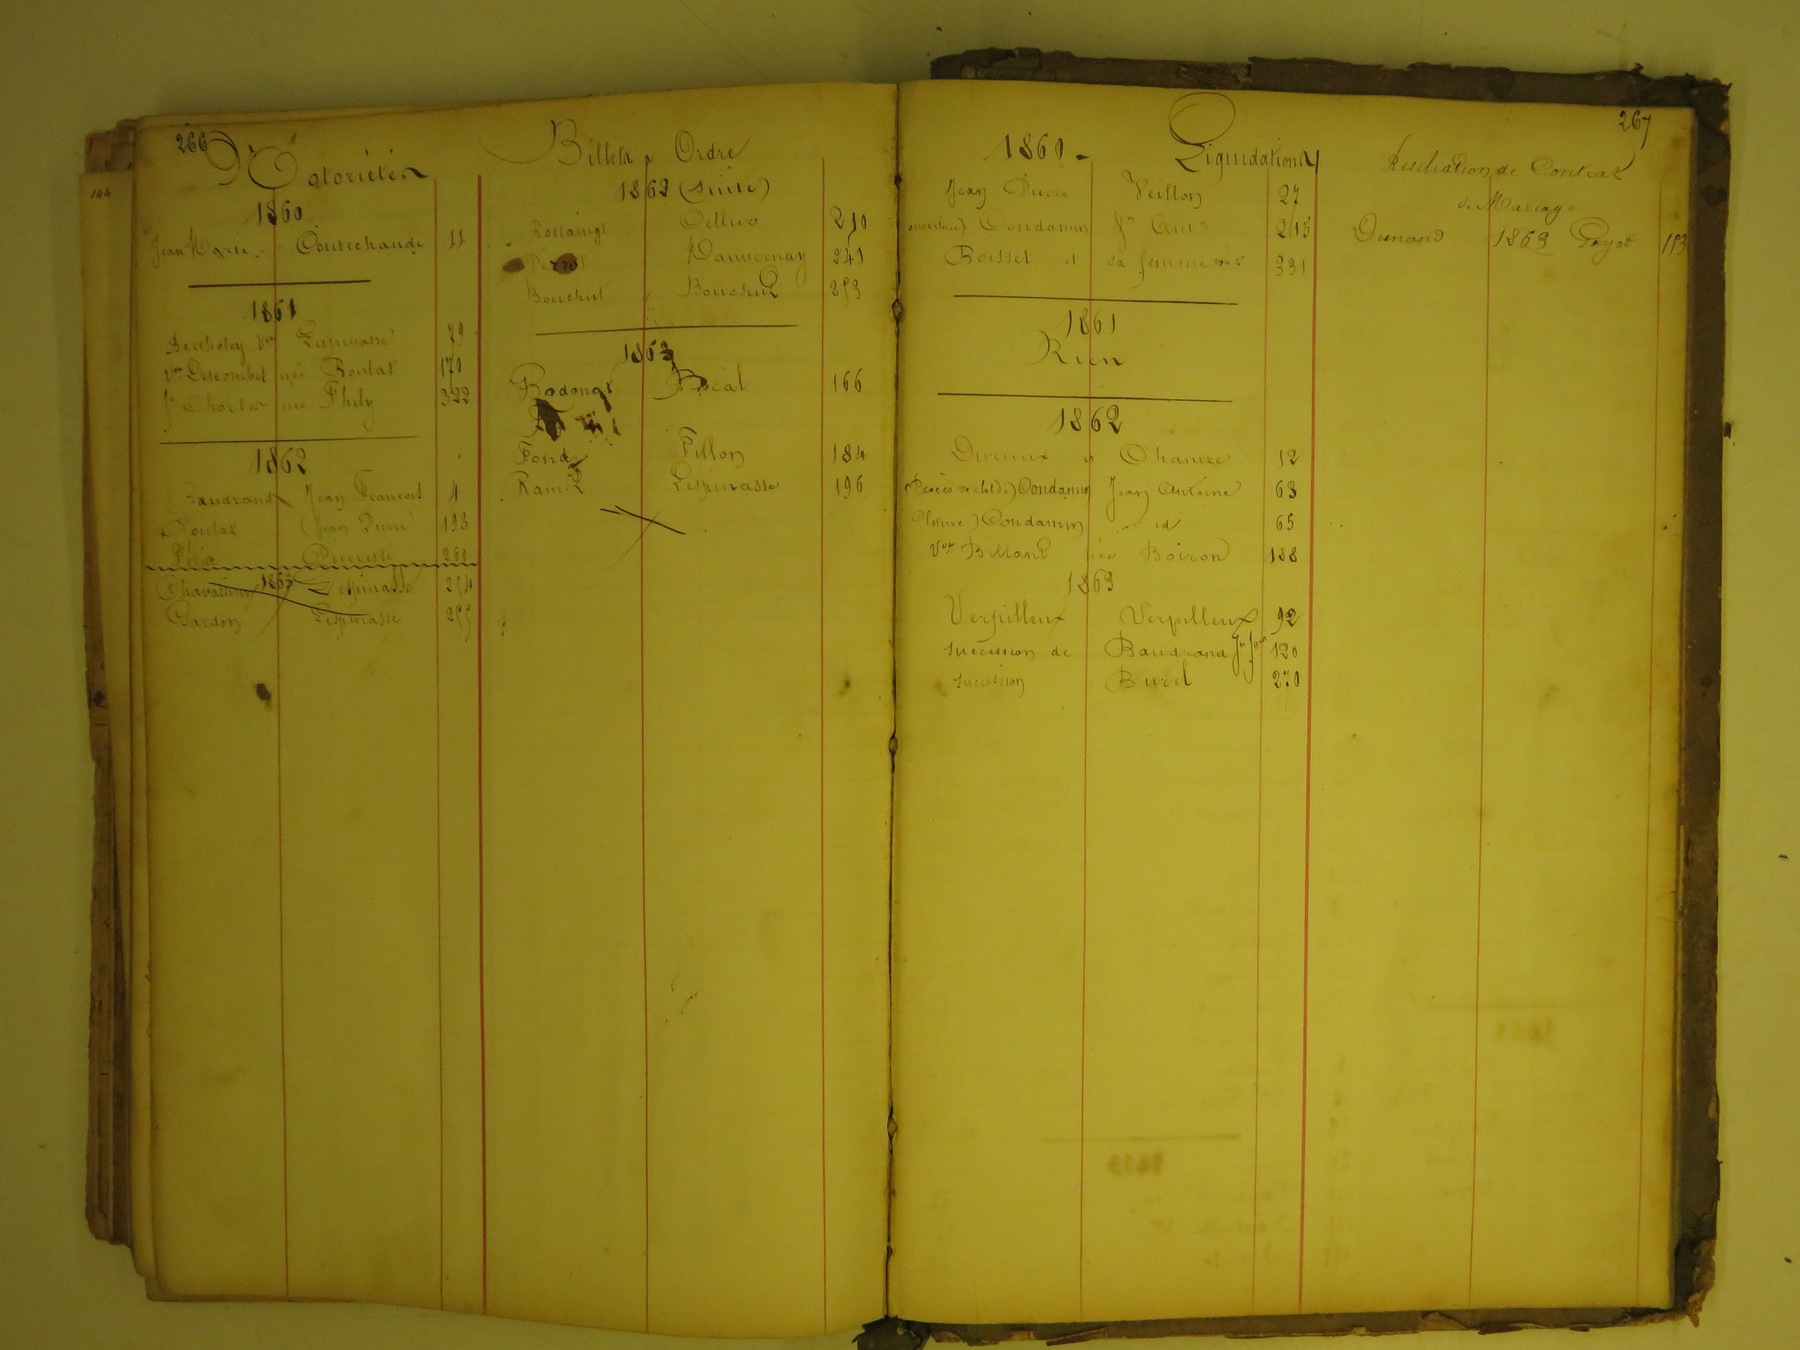 266
Notoriétés
1860
Jean Marie Coutechaude 11
1861
Bertholey Vve Lespinasse 79
Vve Descombes née Boulat 170
née Phily 322
1862
Baudrand Jean François 4
Boulat Jean Pierre 193
Pierrette 260
1863
Lespinasse 254
Gardon Lespinasse 255
Billets à Ordre
1862 (suite)
Rostaingt 210
Perrot Dauvernay 241
Bouchut Bouchut 253
1863
Rodong 166
Fond Fillon 184
Ramel Lespinasse 196
267
1860
Liquidations
Jean Pierre Veillon 27
ouverture) Condamin 215
Boisset et sa femme 331
1861
Rien
1862
et 12
(Procès verbal de) Condamin Jean Antoine 63
Cloture) Condamin id 65
Vve née Boiron 188
1863
Verpilleux Verpilleux 92
Succession de Baudrand 120
Succession Burel 270
Résiliation de Contrat
de Mariage
Dumand 1863 Goyot 153
144